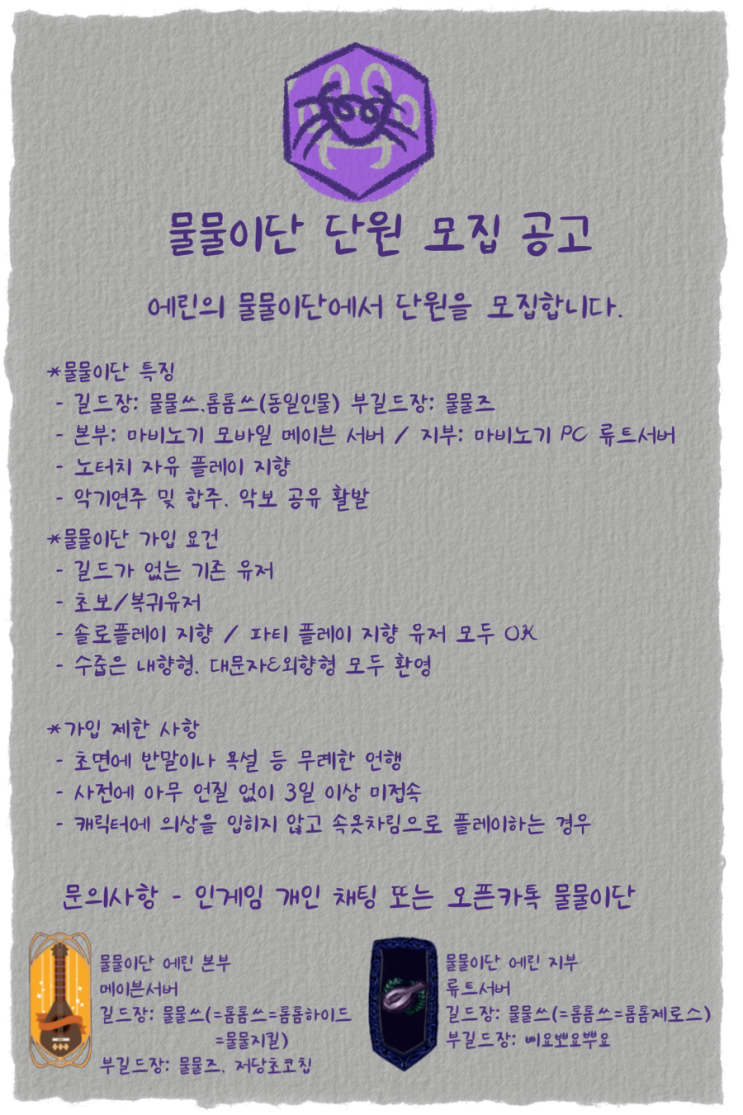 물물이단 단원 모집 공고
에린의 물물이단에서 단원을 모집합니다.
*물물이단 특징
- 길드장: 물물쓰.롬롬쓰(동일인물) 부길드장: 물물즈
- 본부: 마비노기 모바일 메이븐 서버 / 지부: 마비노기 PC 류트서버
- 노터치 자유 플레이 지향
- 악기연주 및 합주. 악보 공유 활발
*물물이단 가입 요건
- 길드가 없는 기존 유저
- 초보/복귀유저
- 솔로플레이 지향 / 파티 플레이 지향 유저 모두 OK
- 수줍은 내향형. 대문자E외향형 모두 환영
*가입 제한 사항
- 초면에 반말이나 욕설 등 무례한 언행
- 사전에 아무 언질 없이 3일 이상 미접속
- 캐릭터에 의상을 입히지 않고 속옷차림으로 플레이하는 경우
문의사항 - 인게임 개인 채팅 또는 오픈카톡 물물이단
물물이단 에린 본부
메이븐서버
길드장: 물물쓰(=롬롬쓰=롬롬하이드
=물물지킬)
부길드장: 물물즈. 저당초코칩
물물이단 에린 지부
류트서버
길드장: 물물쓰(=롬롬쓰=롬롬제로스)
부길드장: 삐요뽀요뿌요